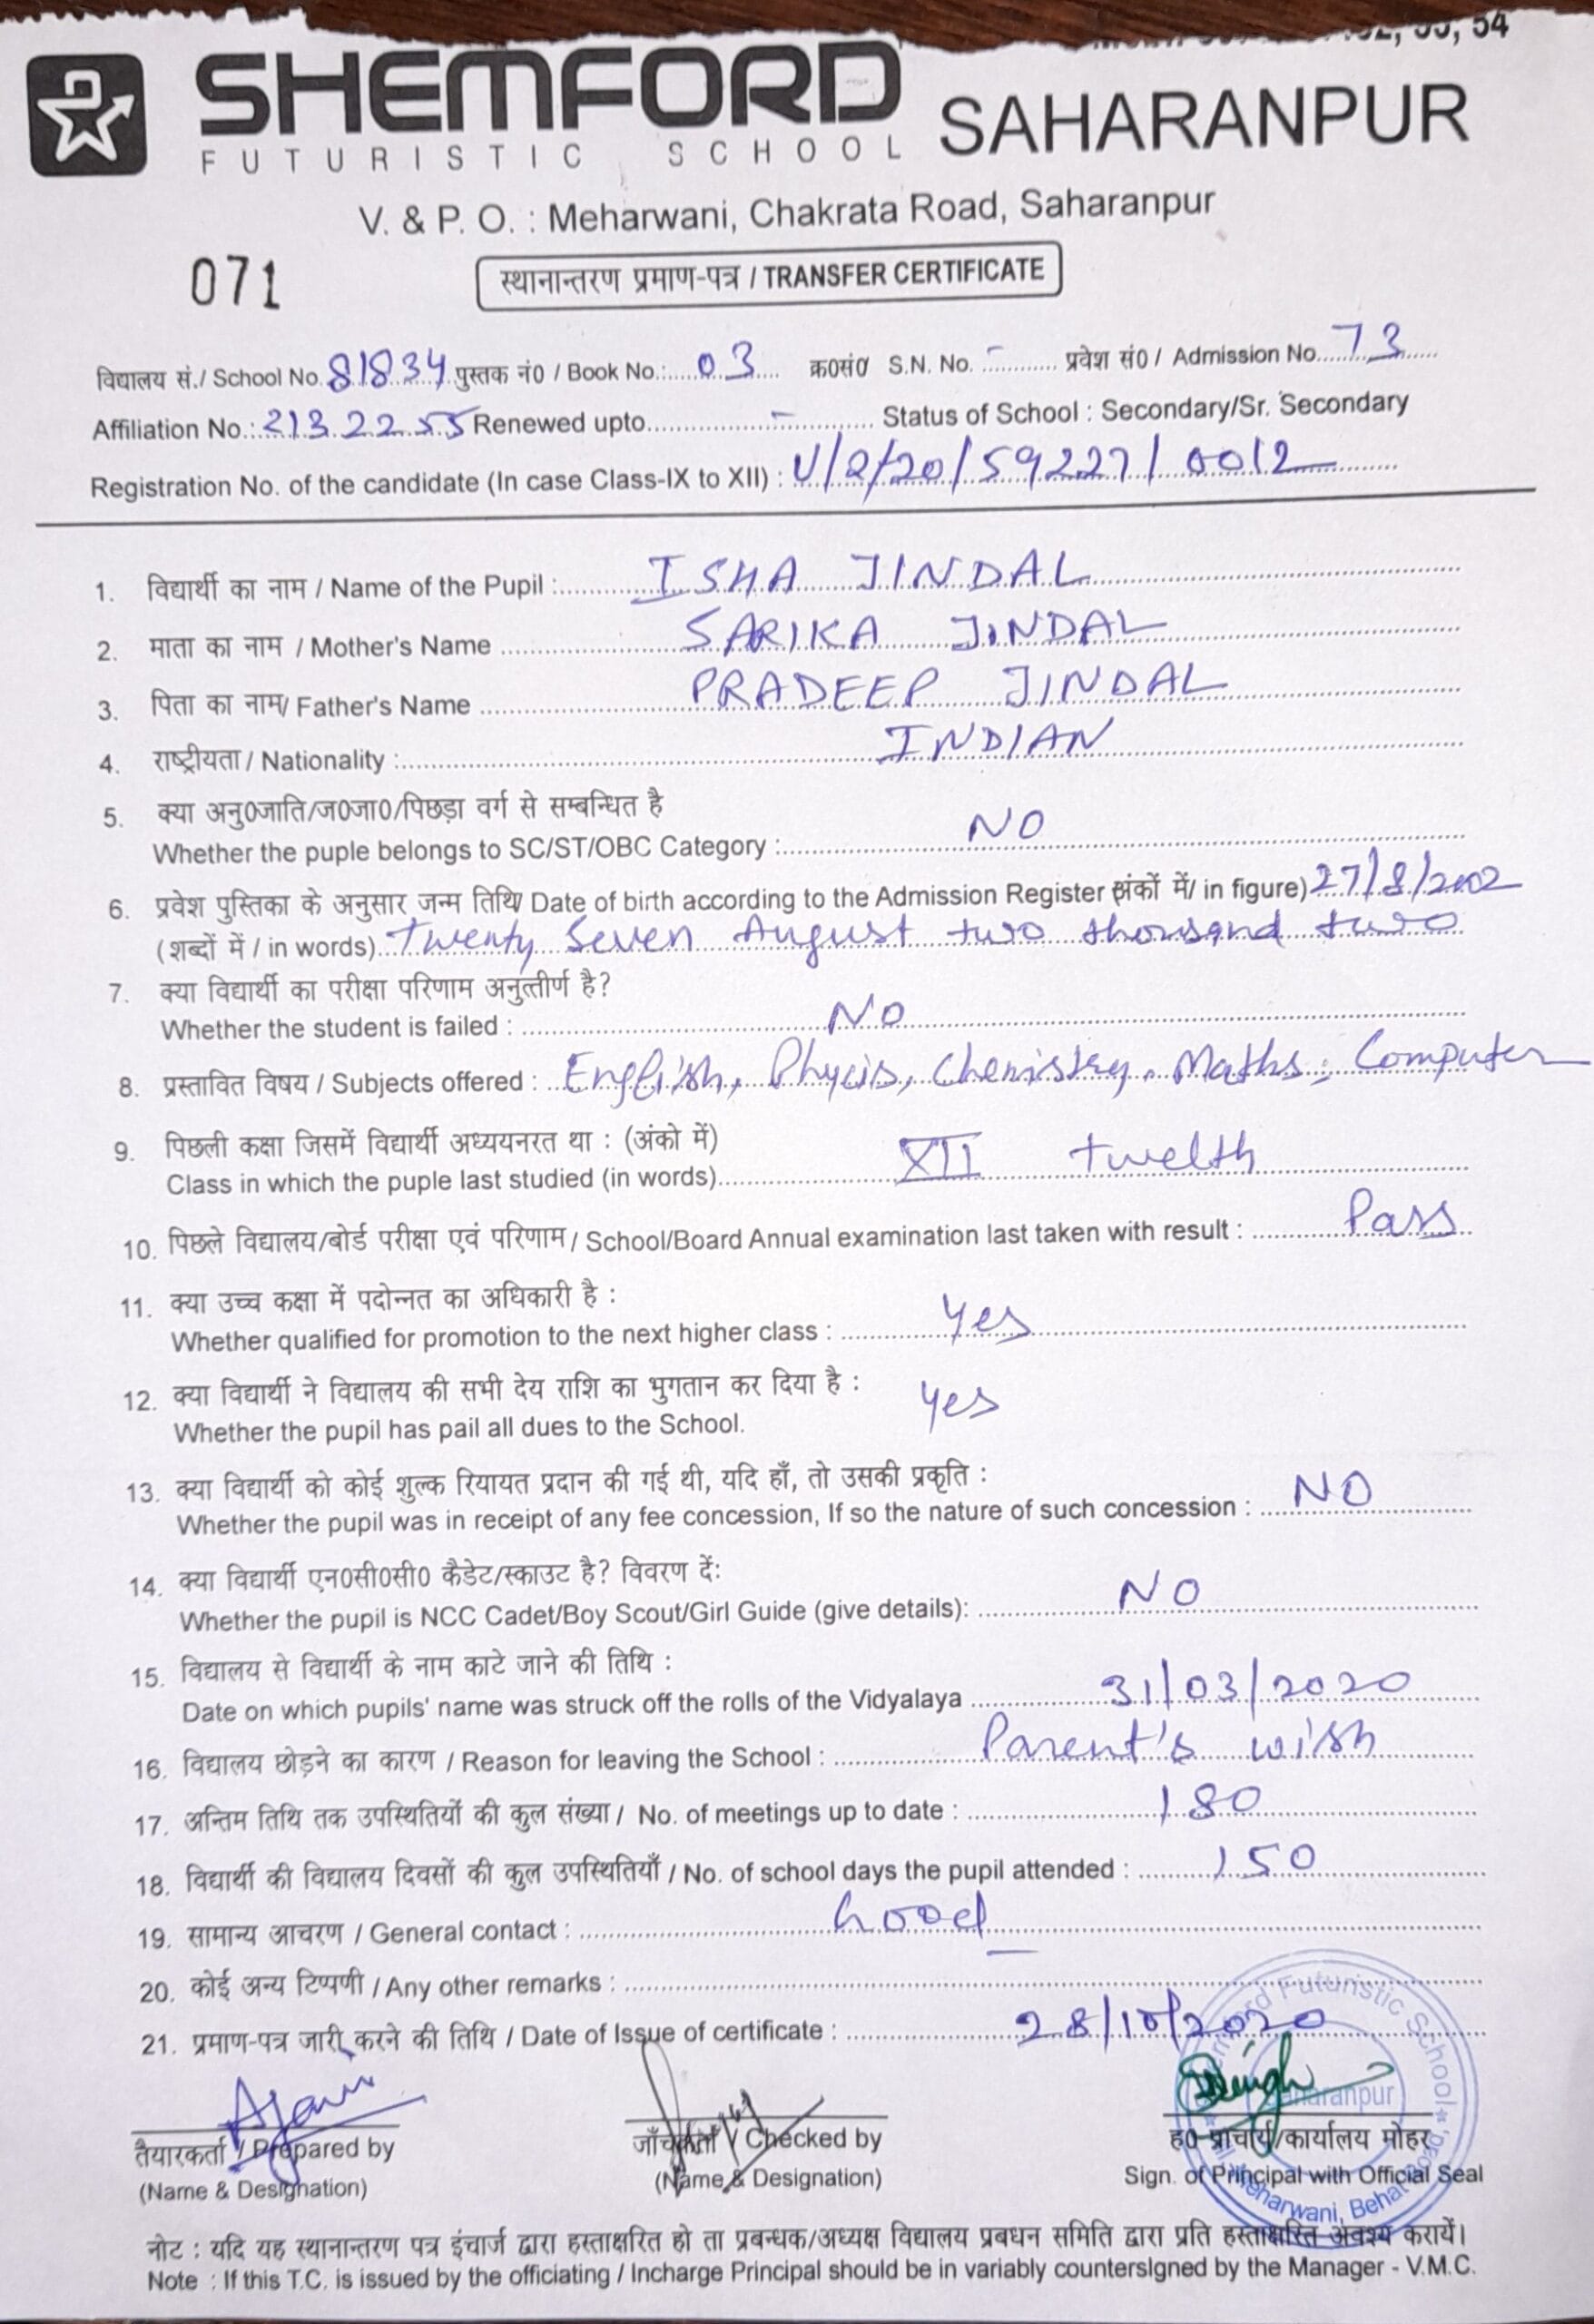 52, 53, 54
SHEMFORD SAHARANPUR
FUTURISTIC SCHOOL
V. & P. O. : Meharwani, Chakrata Road, Saharanpur
071
स्थानान्तरण प्रमाण-पत्र / TRANSFER CERTIFICATE
विद्यालय सं./ School No. 81834 पुस्तक नं0 / Book No.: 03 क्र0सं0 S.N. No. - प्रवेश सं0 / Admission No. 73
Affiliation No.: 2132255 Renewed upto - Status of School : Secondary/Sr. Secondary
Registration No. of the candidate (In case Class-IX to XII) : U/2/20/59227/0012
1. विद्यार्थी का नाम / Name of the Pupil : ISHA JINDAL
2. माता का नाम / Mother's Name SARIKA JINDAL
3. पिता का नाम/ Father's Name PRADEEP JINDAL
4. राष्ट्रीयता / Nationality : INDIAN
5. क्या अनु0जाति/ज0जा0/पिछड़ा वर्ग से सम्बन्धित है
Whether the puple belongs to SC/ST/OBC Category : NO
6. प्रवेश पुस्तिका के अनुसार जन्म तिथि/ Date of birth according to the Admission Register (अंकों में/ in figure) 27/8/2002
(शब्दों में / in words) Twenty Seven August two thousand two
7. क्या विद्यार्थी का परीक्षा परिणाम अनुत्तीर्ण है?
Whether the student is failed : NO
8. प्रस्तावित विषय / Subjects offered : English, Phycis, Chemistry, Maths, Computer
9. पिछली कक्षा जिसमें विद्यार्थी अध्ययनरत था : (अंको में)
Class in which the puple last studied (in words) XII twelth
10. पिछले विद्यालय/बोर्ड परीक्षा एवं परिणाम / School/Board Annual examination last taken with result : Pass
11. क्या उच्च कक्षा में पदोन्नत का अधिकारी है :
Whether qualified for promotion to the next higher class : Yes
12. क्या विद्यार्थी ने विद्यालय की सभी देय राशि का भुगतान कर दिया है :
Whether the pupil has pail all dues to the School. Yes
13. क्या विद्यार्थी को कोई शुल्क रियायत प्रदान की गई थी, यदि हाँ, तो उसकी प्रकृति :
Whether the pupil was in receipt of any fee concession, If so the nature of such concession : NO
14. क्या विद्यार्थी एन0सी0सी0 कैडेट/स्काउट है? विवरण दें:
Whether the pupil is NCC Cadet/Boy Scout/Girl Guide (give details): NO
15. विद्यालय से विद्यार्थी के नाम काटे जाने की तिथि :
Date on which pupils' name was struck off the rolls of the Vidyalaya 31/03/2020
16. विद्यालय छोड़ने का कारण / Reason for leaving the School : Parent's wish
17. अन्तिम तिथि तक उपस्थितियों की कुल संख्या / No. of meetings up to date : 180
18. विद्यार्थी की विद्यालय दिवसों की कुल उपस्थितियाँ / No. of school days the pupil attended : 150
19. सामान्य आचरण / General contact : Good
20. कोई अन्य टिप्पणी / Any other remarks : -
21. प्रमाण-पत्र जारी करने की तिथि / Date of Issue of certificate : 28/10/2020
Futuristic School Saharanpur Meharwani, Behat Road,
तैयारकर्ता / Prepared by जाँचकर्ता / Checked by ह0 प्राचार्य/कार्यालय मोहर
(Name & Designation) (Name & Designation) Sign. of Principal with Official Seal
नोट : यदि यह स्थानान्तरण पत्र इंचार्ज द्वारा हस्ताक्षरित हो ता प्रबन्धक/अध्यक्ष विद्यालय प्रबधन समिति द्वारा प्रति हस्ताक्षरित अवश्य करायें।
Note : If this T.C. is issued by the officiating / Incharge Principal should be in variably countersIgned by the Manager - V.M.C.